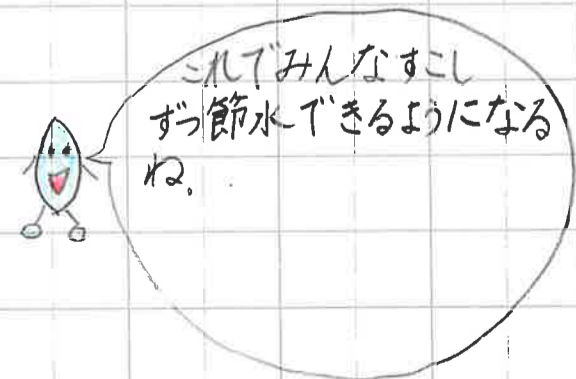 これでみんなすこし
ずつ節水できるようになる
ね。